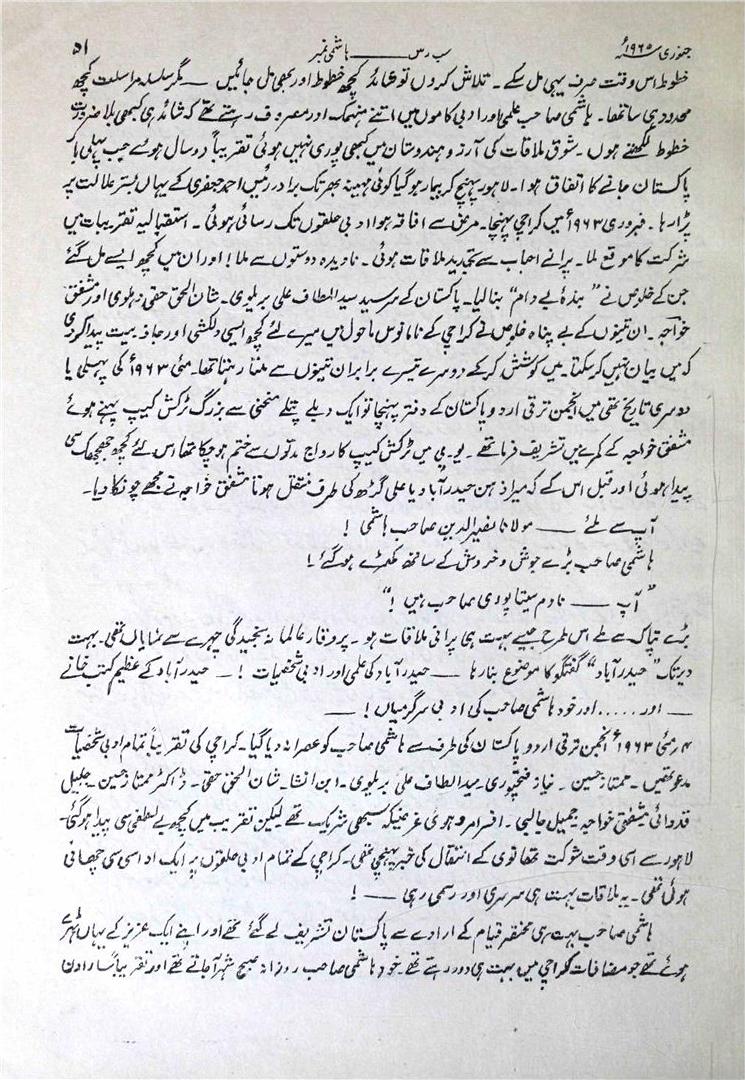 جنوری ۱۹۶۵ء سب رس ــــــ ہاشمی نمبر ۵۱
خطوط اس وقت صرف یہی مل سکے۔ تلاش کروں تو شائد کچھ خطوط اور بھی مل جائیں ــــ مگر سلسلہ مراسلت کچھ
محدود ہی سا تھا۔ ہاشمی صاحب علمی اور ادبی کاموں میں اتنے منہمک اور مصروف رہتے تھے کہ شائد ہی کبھی بلا ضرورت
خطوط لکھتے ہوں۔ شوق ملاقات کی آرزو ہندوستان میں کبھی پوری نہیں ہوئی تقریباً دو سال ہوئے جب پہلی بار
پاکستان جانے کا اتفاق ہوا۔ لاہور پہنچ کر بیمار ہو گیا کوئی مہینہ بھر تک برادر رئیس احمد جعفری کے یہاں بستر علالت پر
پڑا رہا۔ فبروری ۱۹۶۳ء میں کراچی پہنچا۔ مرض سے افاقہ ہوا ادبی حلقوں تک رسائی ہوئی۔ استقبالیہ تقریبات میں
شرکت کا موقع ملا۔ پرانے احباب سے تجدید ملاقات ہوئی۔ نادیدہ دوستوں سے ملا! اور ان میں کچھ ایسے مل گئے
جن کے خلوص نے ”بندۂ بے دام“ بنالیا۔ پاکستان کے سرسید سید الطاف علی بریلوی۔ شان الحق حقی دہلوی اور مشفق
خواجہ۔ ان تینوں کے بے پناہ خلوص نے کراچی کے نامانوس ماحول میں میرے لئے کچھ ایسی دلکشی اور جاذبیت پیدا کردی
کہ میں بیان نہیں کرسکتا۔ میں کوشش کر کے دوسرے تیسرے برابر ان تینوں سے ملتا رہتا تھا۔ مئی ۱۹۶۳ء کی پہلی یا
دوسری تاریخ تھی میں انجمن ترقی اردو پاکستان کے دفتر پہنچا تو ایک دبلے پتلے منحنی سے بزرگ ٹرکش کیپ پہنے ہوئے
مشفق خواجہ کے کمرے میں تشریف فرما تھے۔ یو۔پی میں ٹرکش کیپ کا رواج مدتوں سے ختم ہو چکا تھا اس لئے کچھ جھجھک سی
پیدا ہوئی اور قبل اس کے کہ میرا ذہن حیدرآباد یا علی گڑھ کی طرف منتقل ہوتا مشفق خواجہ نے مجھے چونکا دیا۔
آپ سے ملئے ــــ مولانا نصیر الدین صاحب ہاشمی !
ہاشمی صاحب بڑے جوش و خروش کے ساتھ کھڑے ہو گئے !
”آپ ــــ نادم سیتاپوری صاحب ہیں !“
بڑے تپاک سے ملے اس طرح جیسے بہت ہی پرانی ملاقات ہو۔ پروقار عالمانہ سنجیدگی چہرے سے نمایاں تھی۔ بہت
دیر تک ”حیدرآباد“ گفتگو کا موضوع بنا رہا ــــ حیدرآباد کی علمی اور ادبی شخصیات ! ــ حیدرآباد کے عظیم کتب خانے
ــــ اور ..... اور خود ہاشمی صاحب کی ادبی سرگرمیاں ! ــــ
۴ مئی ۱۹۶۳ء انجمن ترقی اردو پاکستان کی طرف سے ہاشمی صاحب کو عصرانہ دیا گیا۔ کراچی کی تقریباً تمام ادبی شخصیات
مدعو تھیں۔ ممتاز حسین۔ نیاز فتحپوری۔ سید الطاف علی بریلوی۔ ابن انشا۔ شان الحق حقی۔ ڈاکٹر ممتاز حسین۔ جلیل
قدوائی مشفق خواجہ جمیل جالبی۔ افسر امروہوی غرضیکہ سبھی شریک تھے لیکن تقریب میں کچھ بے لطفی سی پیدا ہوگئی۔
لاہور سے اسی وقت شوکت تھانوی کے انتقال کی خبر پہنچی تھی۔ کراچی کے تمام ادبی حلقوں پر ایک اداسی سی چھائی
ہوئی تھی۔ یہ ملاقات بہت ہی سرسری اور رسمی رہی ــــ !
ہاشمی صاحب بہت ہی مختصر قیام کے ارادے سے پاکستان تشریف لے گئے تھے اور اپنے ایک عزیز کے یہاں ٹھہرے
ہوئے تھے جو مضافات کراچی میں بہت ہی دور رہتے تھے۔ خود ہاشمی صاحب روزانہ صبح شہر آجاتے تھے اور تقریباً سارا دن